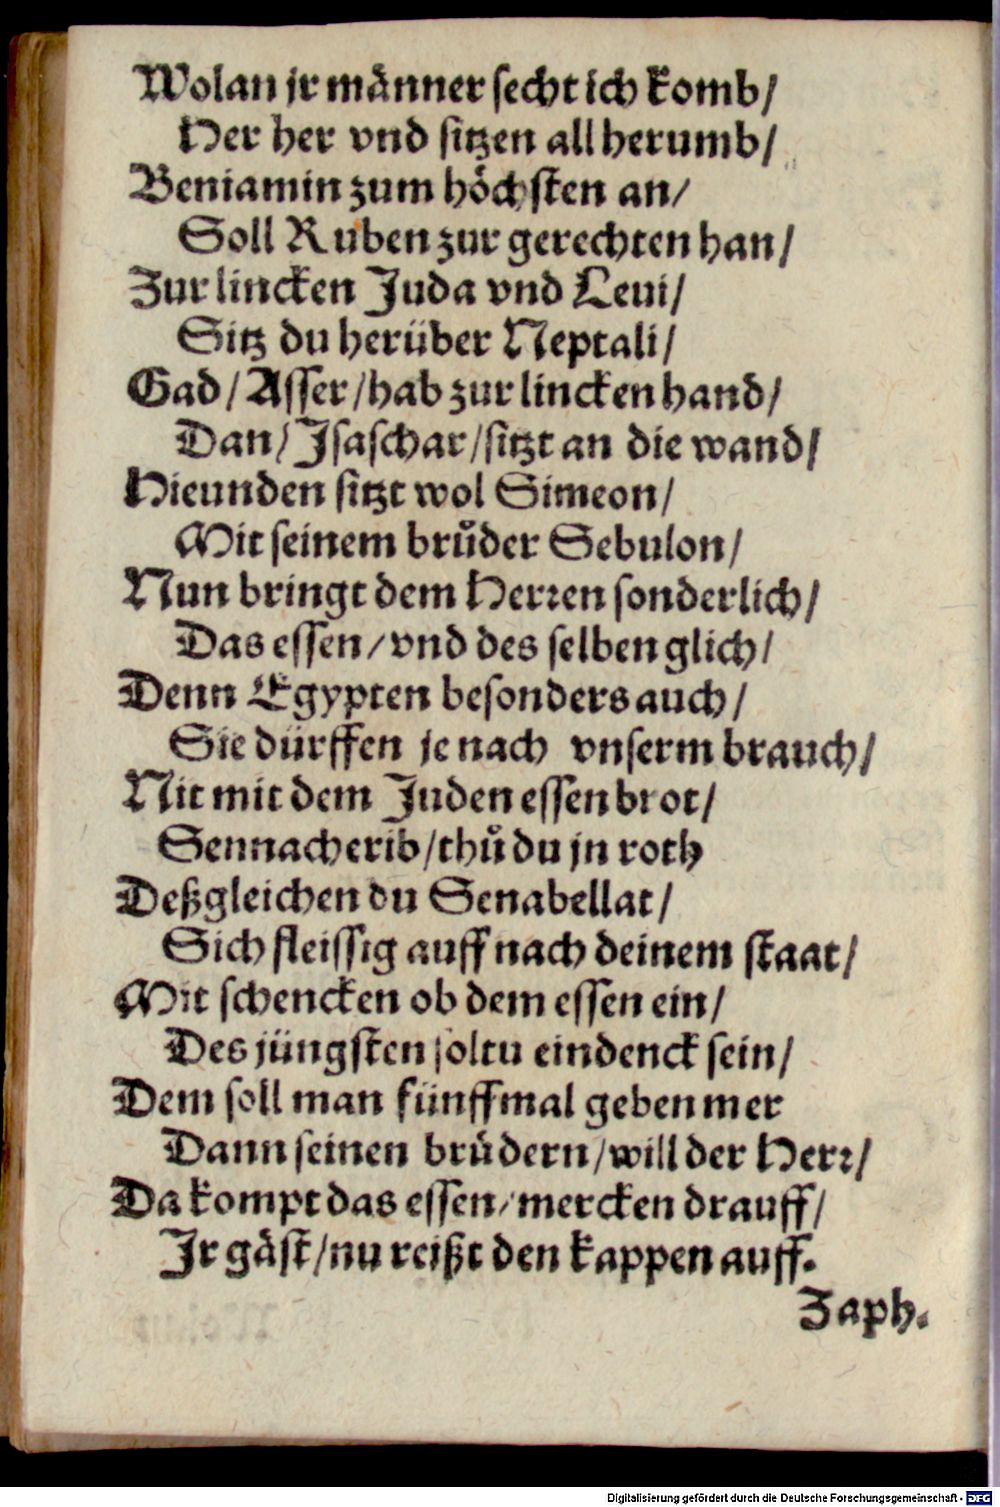 Wolan jr männer secht ich komb/
Her her vnd sitzen all herumb/
Beniamin zum höchsten an/
Soll Ruben zur gerechten han/
Zur lincken Juda vnd Leui/
Sitz du herüber Neptali/
Gad/ Asser/hab zur lincken hand/
Dan/ Jsaschar/sitzt an die wand/
Hieunden sitzt wol Simeon/
Mit seinem brůder Sebulon/
Nun bringt dem Herren sonderlich/
Das essen/vnd des selben glich/
Denn Egypten besonders auch/
Sie dürffen je nach vnserm brauch/
Nit mit dem Juden essen brot/
Sennacherib/thů du jn roth
Deßgleichen du Senabellat/
Sich fleissig auff nach deinem staat/
Mit schencken ob dem essen ein/
Des jüngsten soltu eindenck sein/
Dem soll man fünffmal geben mer
Dann seinen brüdern/will der Herr/
Da kompt das essen/mercken drauff/
Jr gäst/nu reißt den kappen auff.
Zaph.
Digitalisierung gefördert durch die Deutsche Forschungsgemeinschaft - DFG